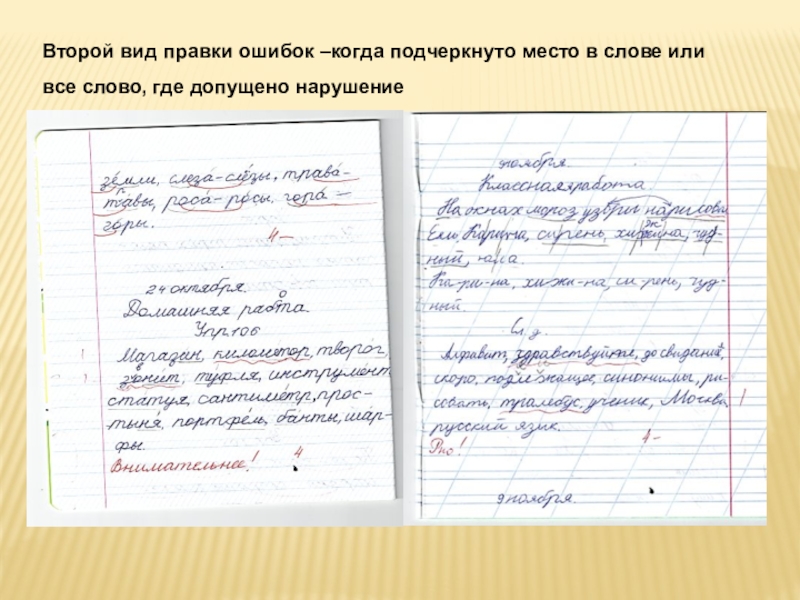 Второй вид правки ошибок –когда подчеркнуто место в слове или
все слово, где допущено нарушение
земли, слеза-слёзы, трава-
травы, роса-росы, гора –
горы.
4–
24 октября.
Домашняя работа.
Упр.106
Магазин, километр, творог,
звонит, туфля, инструмент
статуя, сантиметр, прос-
тыня, портфель, банты, шар-
фы.
Внимательнее! 4
ноября.
Классная работа.
На окнах мороз узоры нарисовал
Ели, Карина, сирень, хижина, чуд-
ный,
Ка-ри-на, хи-жи-на, си-рень, чуд-
ный.
Сл. д.
Алфавит, здравствуйте, до свидания,
скоро, подлежащее, синонимы, ри-
совать, тралебус, ученик, Москва,
русский язык.
Рно! 4–
9 ноября.